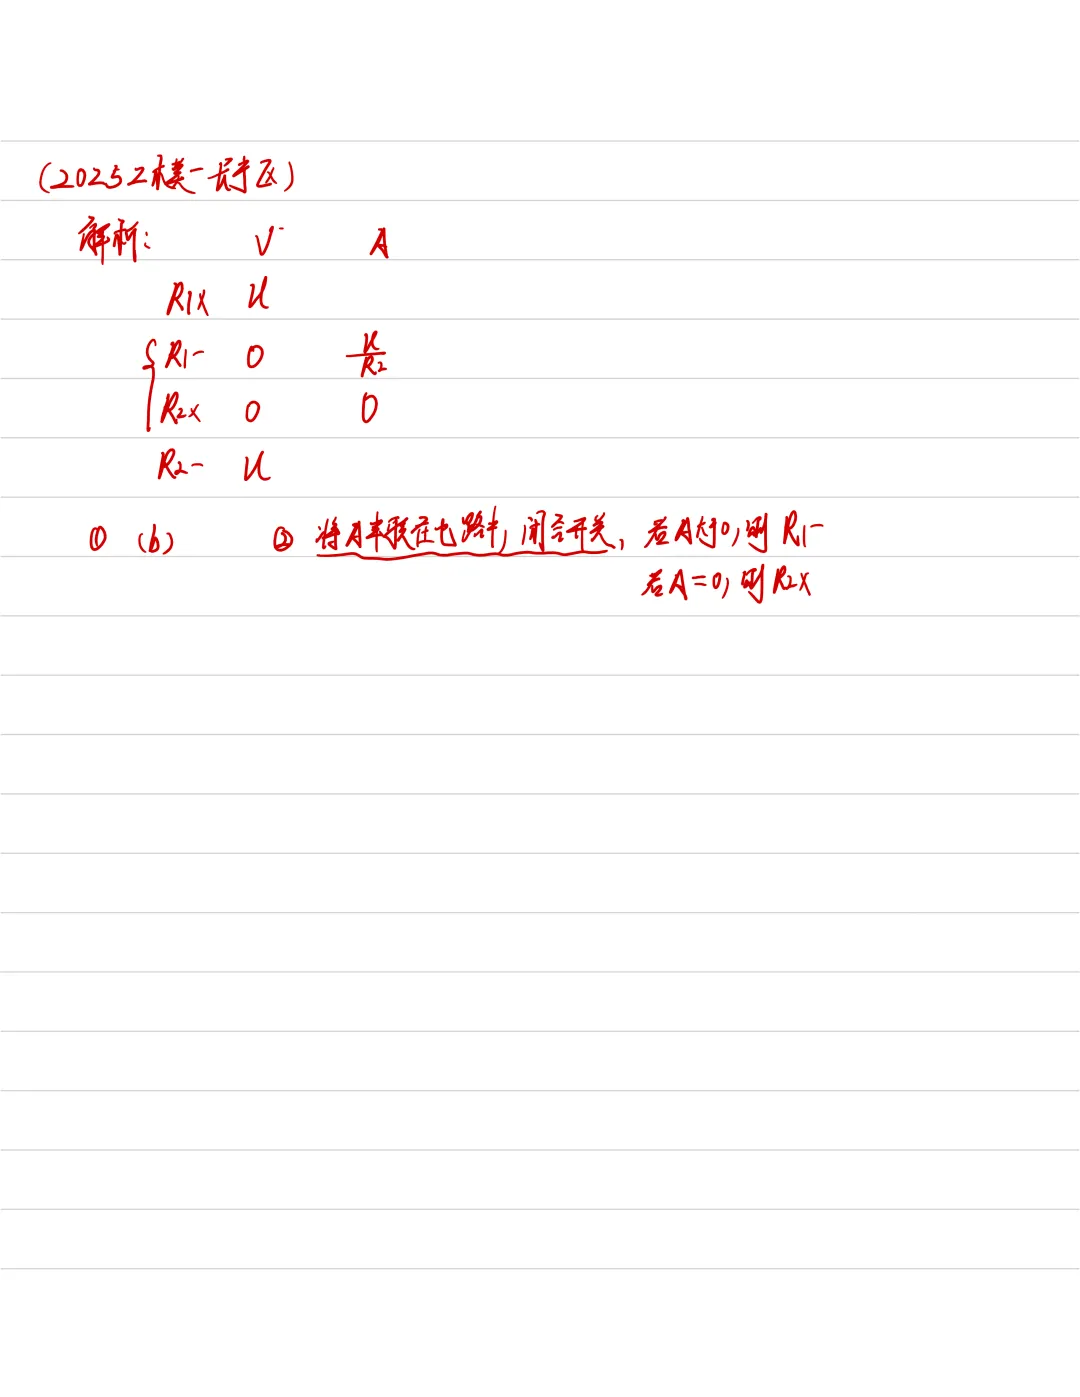 (2025 2模-长宁区)
解析: V A
R1× U
R1- 0 U/R2
R2× 0 0
R2- U
① (b) ② 将A串联在电路中, 闭合开关, 若A大于0, 则 R1-
若A=0, 则R2×